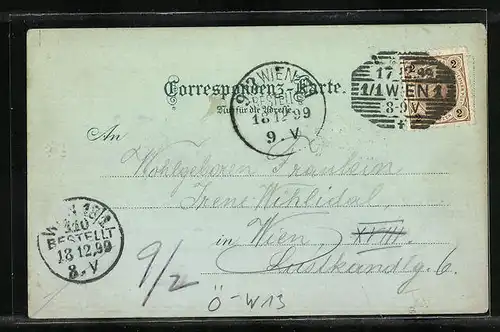 Correspondenz-Karte.
Nur für die Adresse.
17.12.99
1/1 WIEN 1
8-9V
2
2
9/3 WIEN
BESTELLT
13 12 99
9. V
An
Wohlgeboren Fräulein
Irene Wihlidal
in Wien XVIII.
Lustkandlg. 6.
WIEN 18/1
110
BESTELLT
18.12.99
8. V
9/2
Ö-W13